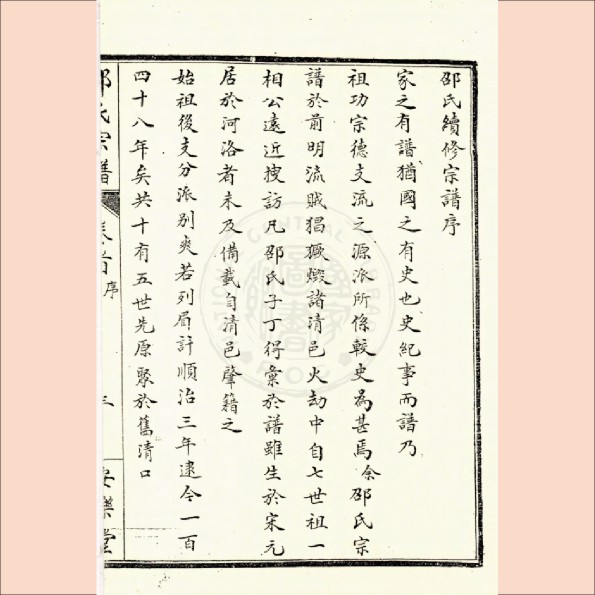 邵氏續修宗譜序
家之有譜猶國之有史也史紀事而譜乃
祖功宗德支流之源派所係較史為甚焉余邵氏宗
譜於前明流賊猖獗燬諸清邑火劫中自七世祖一
相公遠近搜訪凡邵氏子丁得彙於譜雖生於宋元
居於河洛者未及備載自清邑肇籍之
始祖後支分派別爽若列眉計順治三年逮今一百
四十八年矣共十有五世先原聚於舊清口
邵氏宗譜
卷首
序
三
安樂堂